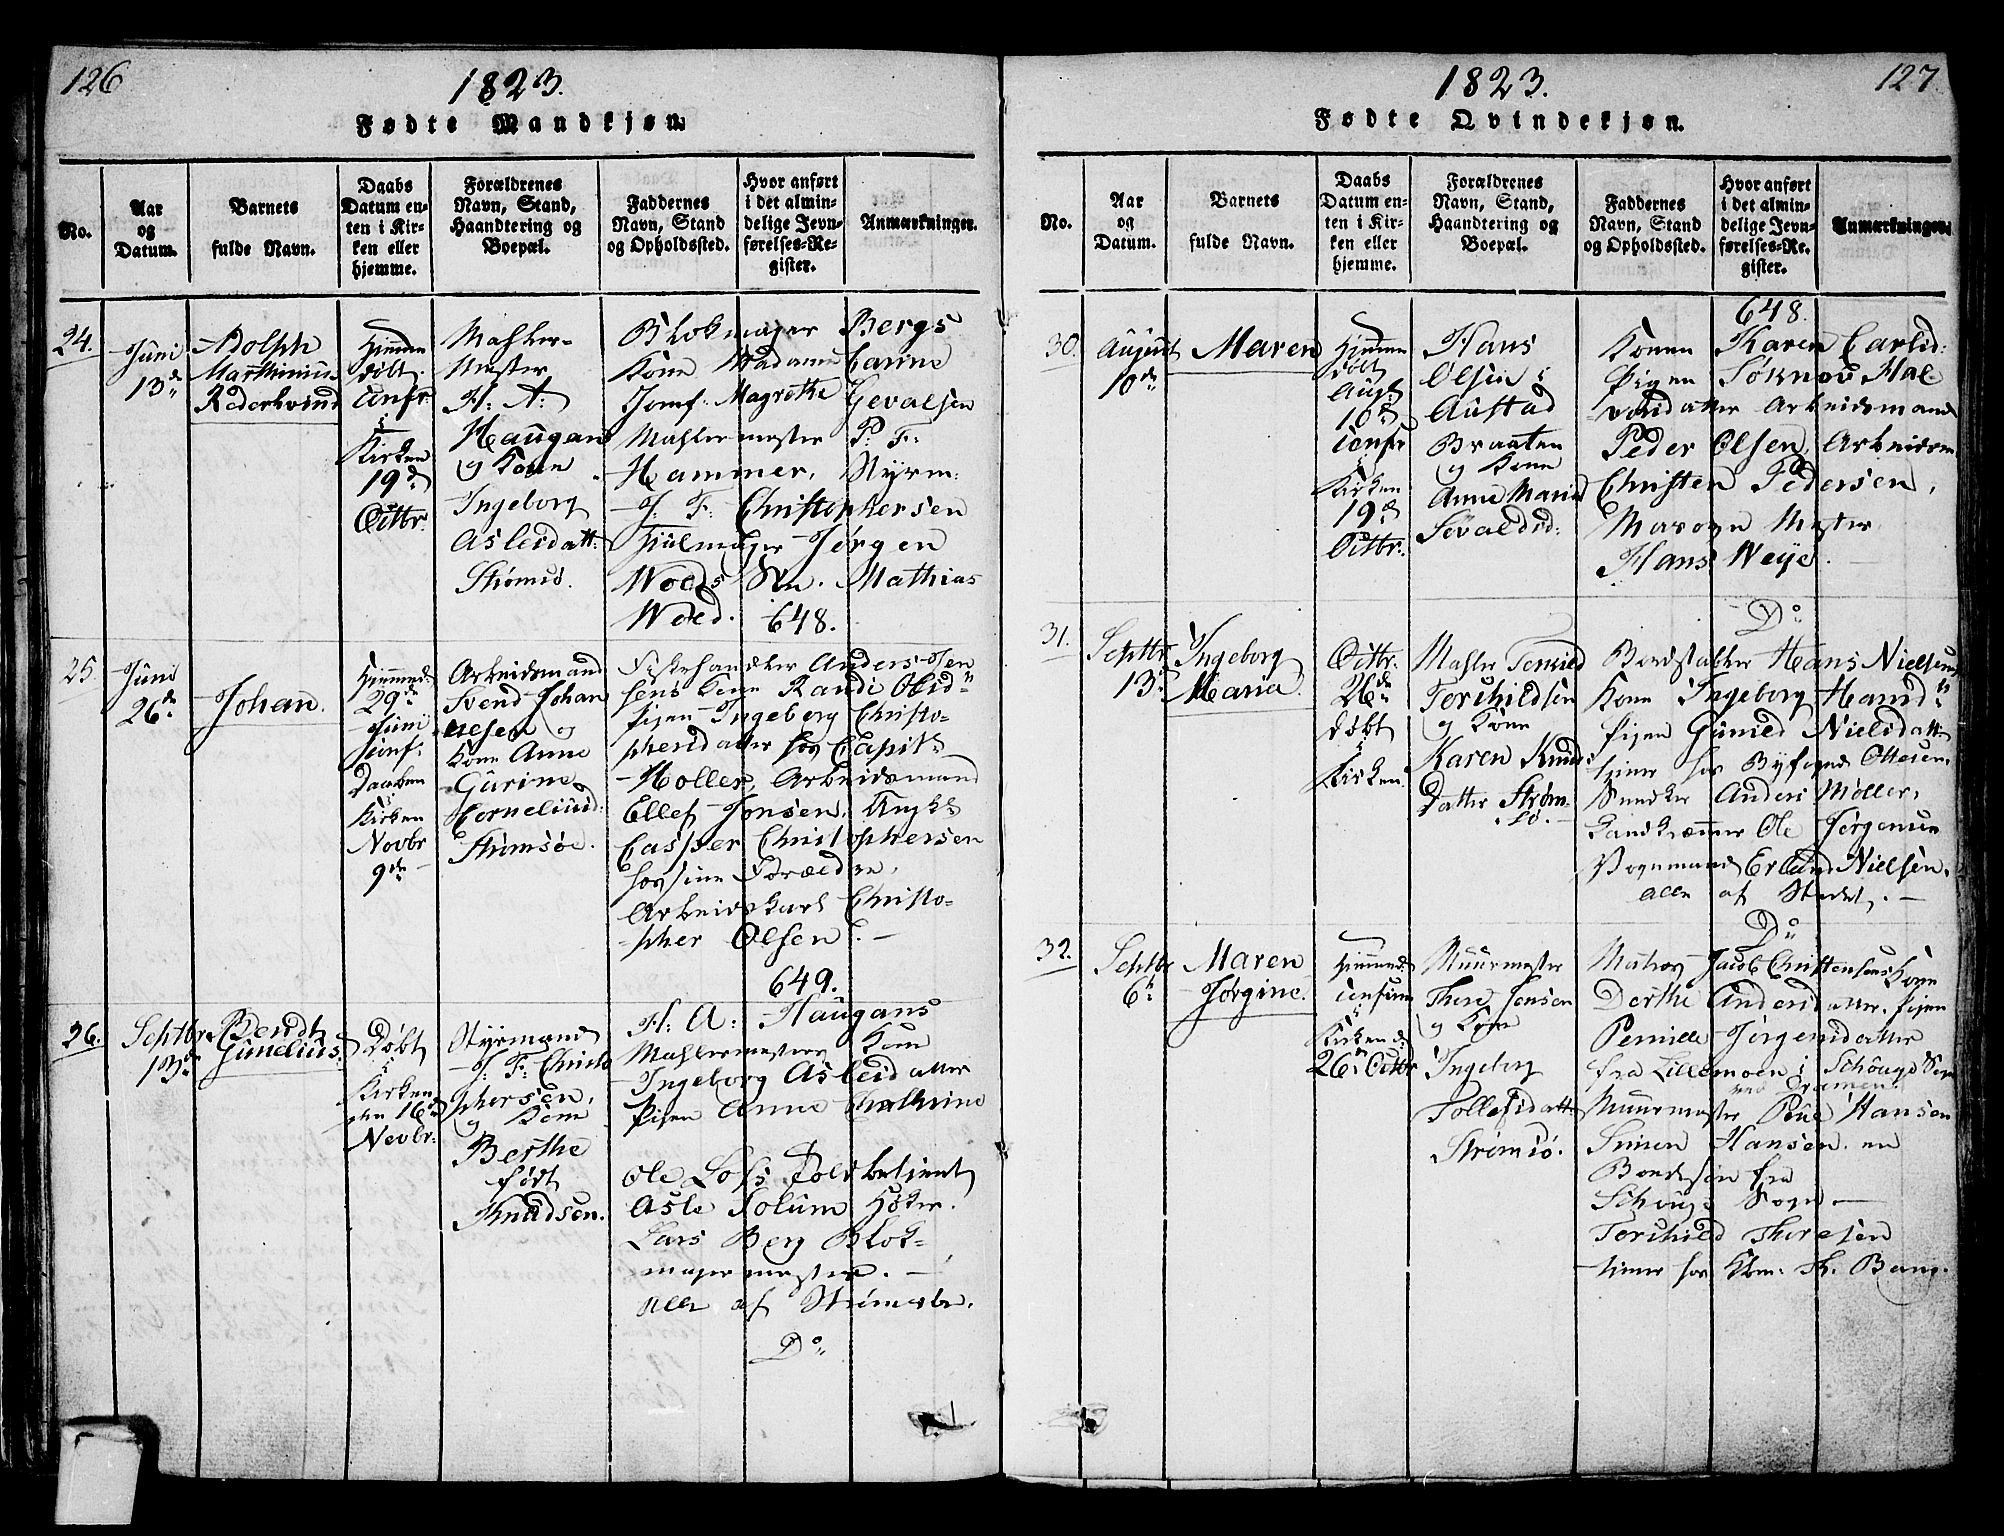 126
1823.
Fødte Mandkjøn.
No.
Aar
og
Datum.
Barnets
fulde Navn.
Daabs
Datum en-
ten i Kir-
ken eller
hjemme.
Forældrenes
Navn, Stand,
Haandtering og
Boepæl.
Faddernes
Navn, Stand
og Opholdssted.
Hvor anført
i det almin-
delige Jevn-
førelses-Re-
gister.
Anmærkninger.
24.
Juni
13de
Adolph
Marthinius
Hjemme
døbt
Confr.
i
Kirken
19d
Octbr.
Mahler-
Mester
H: A:
Haugan
og Kone
Ingeborg
Asleidatt:
Strømsö.
Blokmager Bergs
Kone Madame
Jomf. Magrethe Gevalsen
Mahlermester P: F:
Hammer, Styrm:
J: F: Christophersen
Hjulmager Jørgen
Woeds Sön. Mathias
Woed. 648.
25
Juni
26de
Johan.
Hjemmed:
29de
Juni
Conf.
Daaben
i
Kirken
Novbr
9de
Arbeidsmand
Svend Johan
nesen og
Kone Anne
Gurine
Corneliusd.
Strømsøe.
Fiskehandler Anders Jen
sens Kone Randi Olsd
Pigen Ingeborg Christo-
phersdatter hos Capit:
Holler, Arbeidsmand
Ellef Jonsen,
Casper Christophersen
hos sine Forældre,
Arbeidskarl Christo-
pher Olsen.
649.
26.
Septbr
13de
Berndt
Gunelius.
Døbt
i
Kirken
den 16d
Novbr.
Styrmand
J: F: Christo
phersen,
og Kone
Berthe
født
Knudsen.
H: A: Haugans
Mahlermesters Kone
Ingeborg Asleidatter
Pigen Anne Cathrine
Ole Lofs Toldbetient
Asle Solum Høker.
Lars Berg Blok-
magermester.
Alle af Strømsøe.
Do
127.
1823.
Fødte Qvindekjøn.
No.
Aar
og
Datum.
Barnets
fulde Navn.
Daabs
Datum en-
ten i Kir-
ken eller
hjemme.
Forældrenes
Navn, Stand,
Haandtering og
Boepæl.
Faddernes
Navn, Stand
og Opholdssted.
Hvor anført
i det almin-
delige Jevn-
førelses-Re-
gister.
Anmærkninger.
30.
August
10de
Maren
Hjemme
døbt
Aug.
10d
Confr
i
Kirken
19d
Octbr.
Hans
Olsen i
Austad
Braaten
og Kone
Anne Maria
Sevaldsd:
648.
Konen Karen Carlsd:
Pigen
Arbeidsmand
Peder Olsen, Arbeidsm
Christen Pedersen,
Mester
Hans Weye.
31.
Septbr
13d
Ingeborg
Maria.
Octbr.
26de
døbt
i
Kirken
Mahler
Torchildsen
og Kone
Karen Knuds
datter Strøm-
sö.
Do
Hans Nielsens
Kone Ingeborg
Pigen Gunild Nielsdatt
tiener hos Byfoged Ottesen,
Snedker Anders Møller,
Ole Jørgensen
Vognmand Erland Nielsen.
alle af Stedet.
32.
Septbr
6d
Maren
Jørgine.
Hjemmed:
Confirm
i
Kirken d:
26de Octbr
Muurmester
Thore Jensen
og Kone
Ingeborg
Tollefsdatt:
Strømsö.
Do
Matros Jacob Christensens Kone
Dorthe Andersdatter. Pigen
Pernille Jørgensdatter
fra Lillemoen i Schougs Sogn
ved Dramen
Muurmester Peder Hansen
Simen Hansen en
Bondesøn fra
Schougs Sogn
Torchild Thoresen
tiener hos Kbm: Th. Bang.